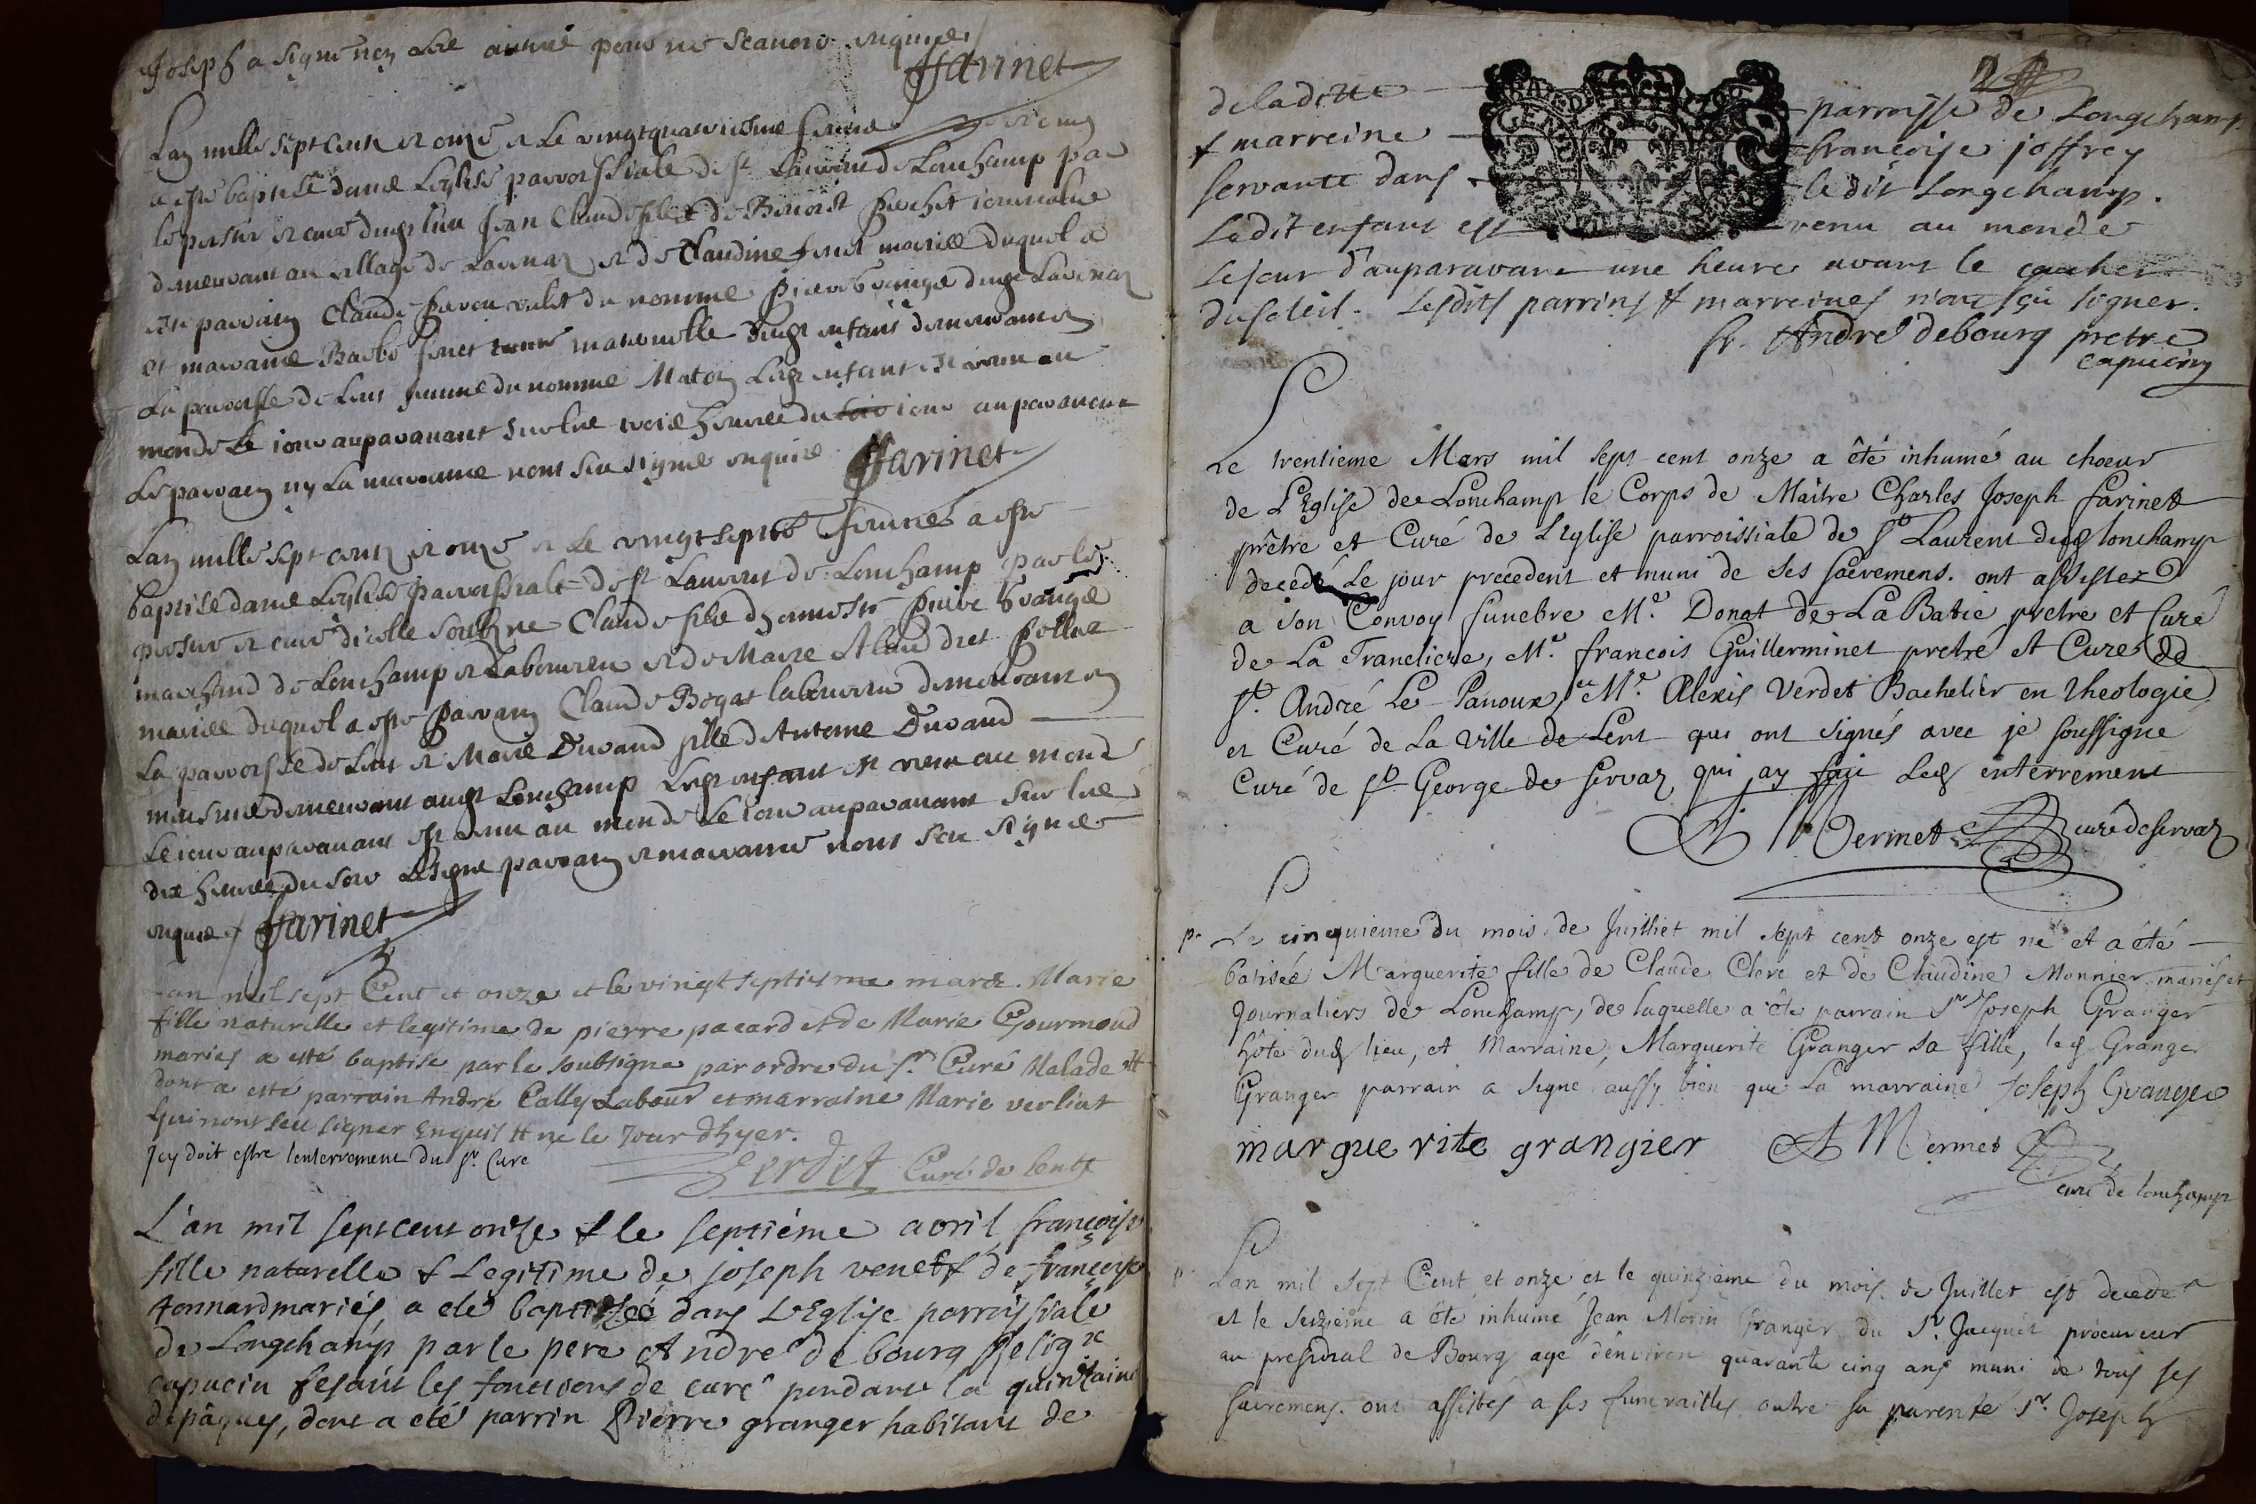 Joseph a signé non les autres pour ne scavoir enquis
ffarinet
Lan mille sept centz et onze et le vingtquatriesme feuvrier
a esté baptisé dans Leglise parroissiale de st Laurent de Lonchamp par
le pr curé dudit lieu Jean Claude fils de Benoist
demeurant au village de et de Claudine mariés duquel a
esté parrain Claude valet du nommé Pierre
et marraine maternelle dudt enfant demeurant en
La parroisse de Lent femme du nommé Ledt enfant est venu au
monde Le jour auparavant sur les trois heures du soir jour auparavant
Le parrain ny La marraine nont sceu signer enquis ffarinet
Lan mille sept centz et onze et le vingtsept feuvrier a esté
baptisé dans Leglise parroissiale de st Laurent de Lonchamp par le
curé dicelle soubzne Claude fils dhonneste Pierre
marchand de Lonchamp et Laboureur et de Marie
mariés duquel a esté parrain Claude laboureur demeurant en
La parroisse de Lent et Marie Durand fille dAntoine Durand
demeurant audt Lonchamp Ledt enfant est venu au monde
Le jour auparavant est venu au monde Le jour auparavant sur les
dix heures du soir parrain et marraine nont sceu signer
enquis ffarinet
Lan mil sept Cent et onze et le vingt septiesme mars. Marie
fille naturelle et legitime de pierre pacard et de Marie Gourmond
mariés a esté baptise par le soubsigne par ordre du sr. Curé Malade et
dont a esté parrain André Cally Labour et marraine Marie verliat
qui nont sceu signer Enquis et ne le Jour dhyer.
Icy doit estre lenterrement du sr. Curé
Verdet Curé de lent
L'an mil sept cent onze & le septiéme avril françoise
fille naturelle & Legitime de joseph venet & de françoise
tonnard mariés, a eté baptisée dans L'Eglise parroissiale
de Longchamp par le pere André de bourg Religx
capucin fesant les fonctions de curé pendant la quinzaine
de pâques, dont a eté parrin Pierre granger habitant de
de la ditte parroisse de Longchamp
& marreine françoise joffrey
servante dans le dit Longchamp.
Le dit enfant est venu au monde
le jour d'auparavant une heure avant le coucher
du soleil. Lesdits parrins & marreines n'ont sçû signer.
fr. André debourg pretre
capucin
Le trentieme Mars mil sept cent onze a êté inhumé au choeur
de L'Eglise de Lonchamp le Corps de Maitre Charles Joseph farinet
prêtre et Curé de L'eglise parroissiale de St Laurent dudt lonchamp
decedé Le jour precedent et muni de ses sacremens. ont assistez
a son Convoy funebre Mr. Donat de La Batie pretre et Curé
de La Tranclicre, Mr. francois Guilleminet pretre et Curé de
St. André Le Panoux, et Mr. Alexis Verdet Bachelier en theologie
et Curé de La ville de Lent qui ont signés avec je soussigné
Curé de St George de servaz qui ay fait Ledt enterrement
A Mermet curé de servaz
pr Le cinquieme du mois de Juillet mil sept cent onze est né et a êté
batisée Marguerite fille de Claude Clerc et de Claudine Monnier mariés et
Journaliers de Lonchamp, de laquelle a êté parrain Sr Joseph Granger
hôte dudt lieu, et Marraine, Marguerite Granger sa fille, ledt Granger
Granger parrain a signé aussy bien que La marraine Joseph Granger
marguerite grangier A Mermet
curé de lonchamp
Lan mil sept Cent et onze, et le quinzieme du mois de Juillet est decedé
et le seizieme a êté inhumé Jean Morin Granger du Sr. Jacquet procureur
au presidial de Bourg agé d'environ quarante cinq ans muni de tous ses
sacremens. ont assistés a ses funerailles outre sa parenté Sr. Joseph